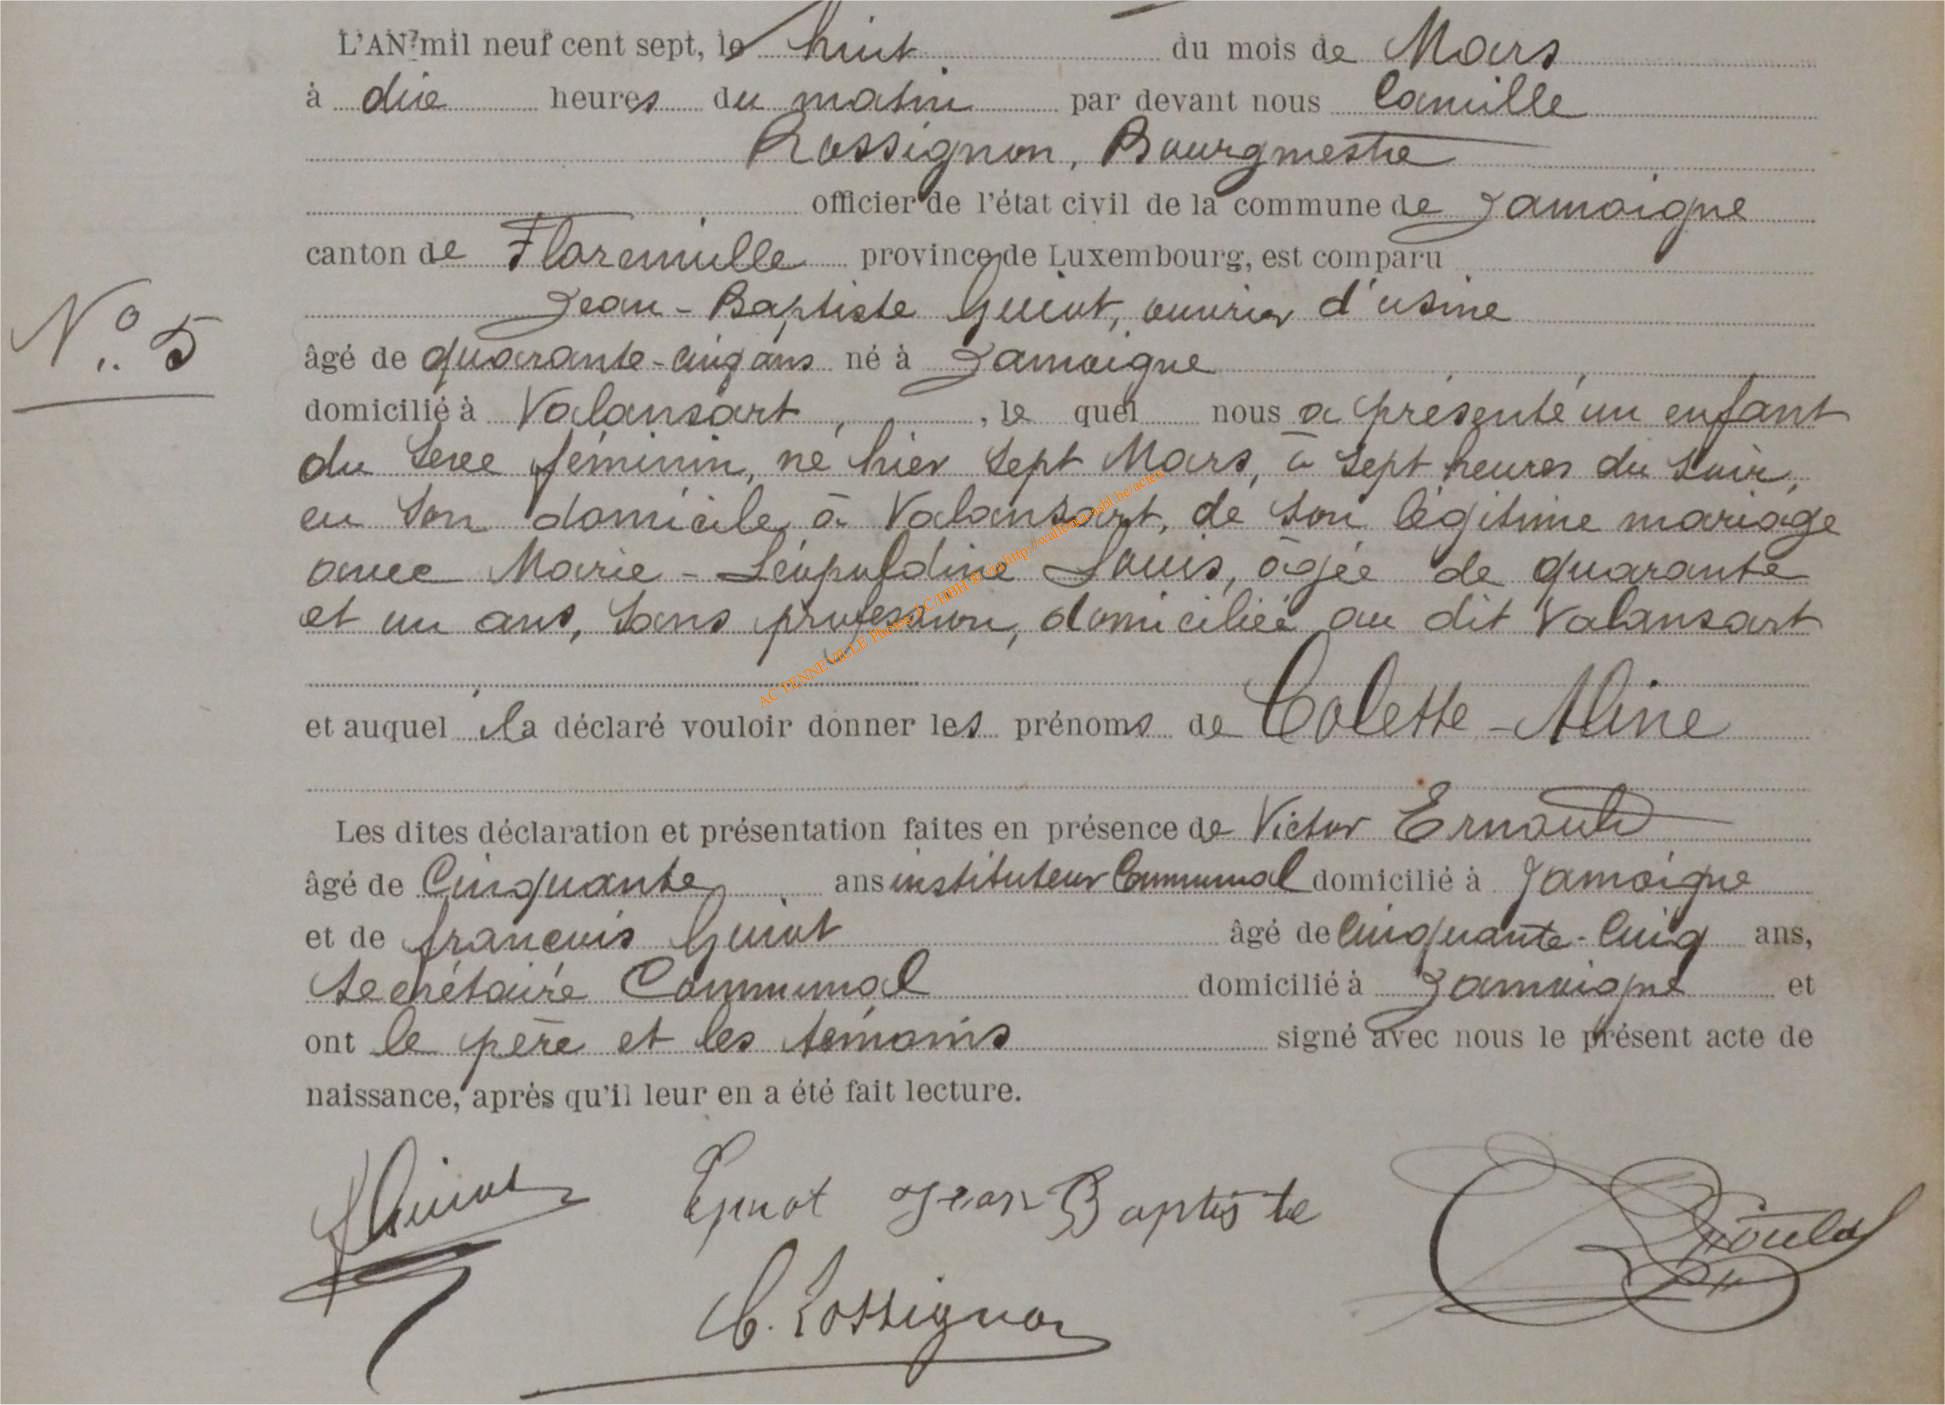 L'AN mil neuf cent sept, le huit du mois de Mars
à dix heures du matin par devant nous Camille
Rossignon, Bourgmestre
officier de l'état civil de la commune de Jamoigne
canton de Florenville province de Luxembourg, est comparu
Jean-Baptiste Guiot, ouvrier d'usine
N° 5
âgé de quarante-cinq ans né à Jamoigne
domicilié à Valansart, le quel nous a présenté un enfant
du sexe féminin, né hier sept Mars, à sept heures du soir,
en son domicile à Valansart, de son légitime mariage
avec Marie-Léopoldine Louis, âgée de quarante
et un ans, sans profession, domiciliée au dit Valansart
et auquel il a déclaré vouloir donner les prénoms de Colette-Aline
Les dites déclaration et présentation faites en présence de Victor Ernould
âgé de Cinquante ans instituteur Communal domicilié à Jamoigne
et de françois Guiot âgé de Cinquante-Cinq ans,
Secrétaire Communal domicilié à Jamoigne et
ont le père et les témoins signé avec nous le présent acte de
naissance, après qu'il leur en a été fait lecture.
Guiot Jean Baptiste
C. Rossignon